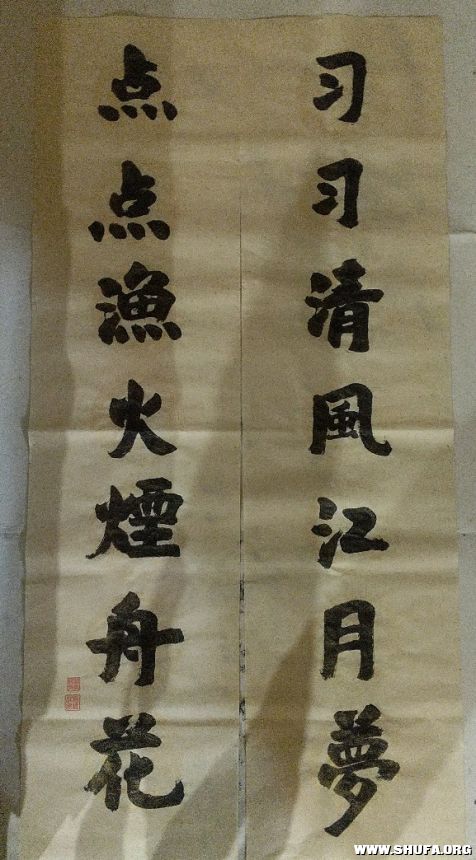 习习清風江月夢
点点漁火煙舟花
WWW.SHUFA.ORG